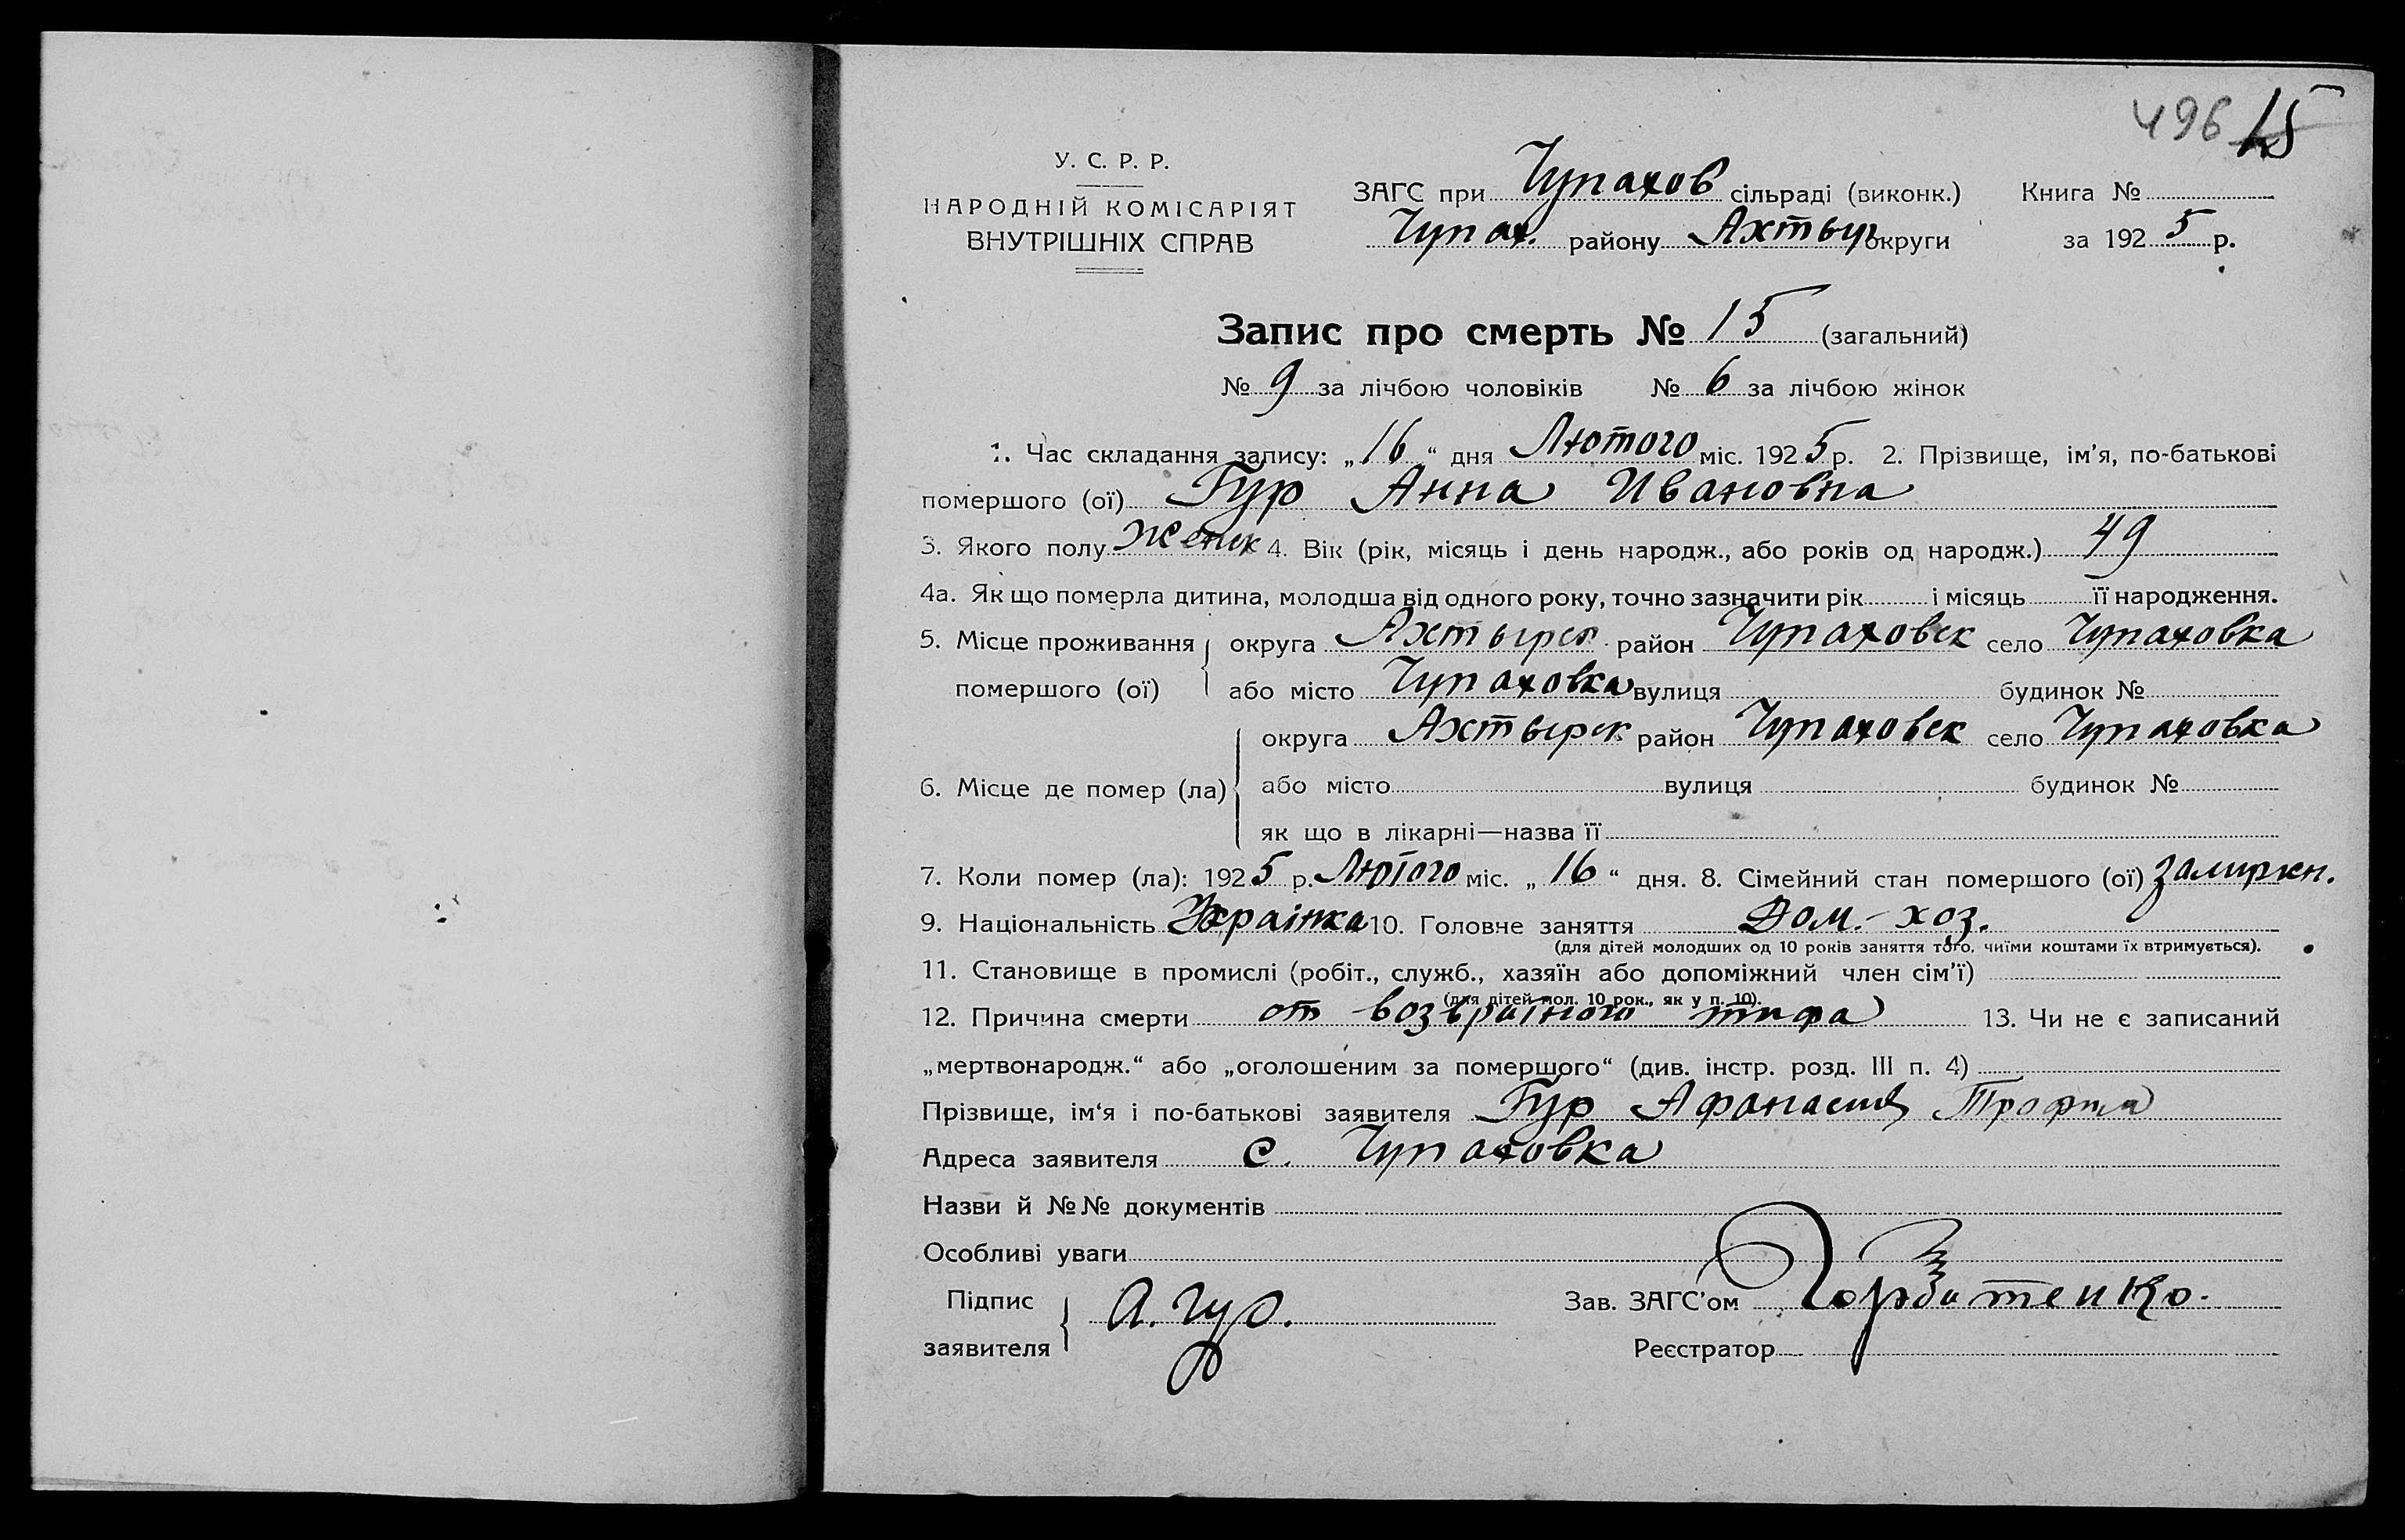 496 15
У. С. Р. Р.
НАРОДНІЙ КОМІСАРІЯТ
ВНУТРІШНІХ СПРАВ
ЗАГС при Чупахов сільраді (виконк.) Книга №
Чупах. району Ахтыр округи за 1925 р.
Запис про смерть № 15 (загальний)
№ 9 за лічбою чоловіків № 6 за лічбою жінок
1. Час складання запису: „16“ дня Лютого міс. 1925 р. 2. Прізвище, ім’я, по-батькові
помершого (ої) Гур Анна Ивановна
3. Якого полу женск 4. Вік (рік, місяць і день народж., або років од народж.) 49
4а. Як що померла дитина, молодша від одного року, точно зазначити рік і місяць її народження.
5. Місце проживання округа Ахтырск район Чупаховск село Чупаховка
помершого (ої) або місто Чупаховка вулиця будинок №
округа Ахтырск район Чупаховск село Чупаховка
6. Місце де помер (ла) або місто вулиця будинок №
як що в лікарні—назва її
7. Коли помер (ла): 1925 р. Лютого міс. „16“ дня. 8. Сімейний стан помершого (ої)
9. Національність Украінка 10. Головне заняття Дом.-хоз.
(для дітей молодших од 10 років заняття того, чиїми коштами їх втримується).
11. Становище в промислі (робіт., служб., хазяїн або допоміжний член сім’ї)
(для дітей мол. 10 рок., як у п. 10).
12. Причина смерти от возвратного тифа 13. Чи не є записаний
„мертвонародж.“ або „оголошеним за помершого“ (див. інстр. розд. III п. 4)
Прізвище, ім‘я і по-батькові заявителя Гур Афанасий
Адреса заявителя с. Чупаховка
Назви й №№ документів
Особливі уваги
Підпис заявителя А. Гур.
Зав. ЗАГС’ом Горбатенко.
Реєстратор